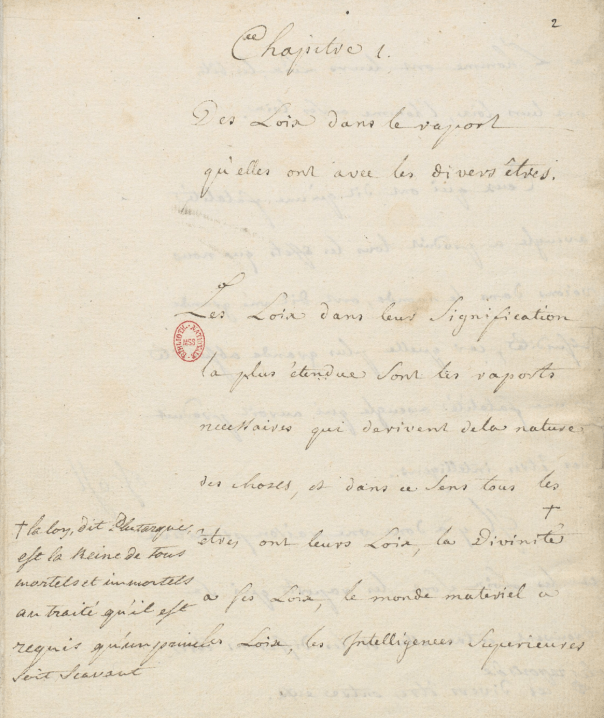 2
Chapitre 1.
Des Loix dans le raport
qu'elles ont avec les divers êtres.
Les Loix dans leur Signification
BIBLIOTH. NATIONALE
MSS
la plus étendue Sont les raports
necessaires qui derivent dela nature
des choses, et dans ce Sens tous les
êtres ont leurs Loix, la Divinité †
a ses Loix, le monde materiel a
ses Loix, les Intelligences Superieures
† la loy, dit Plutarque,
est la Reine de tous
mortels et immortels
au traité qu'il est
requis qu'un prince
soit Scavant